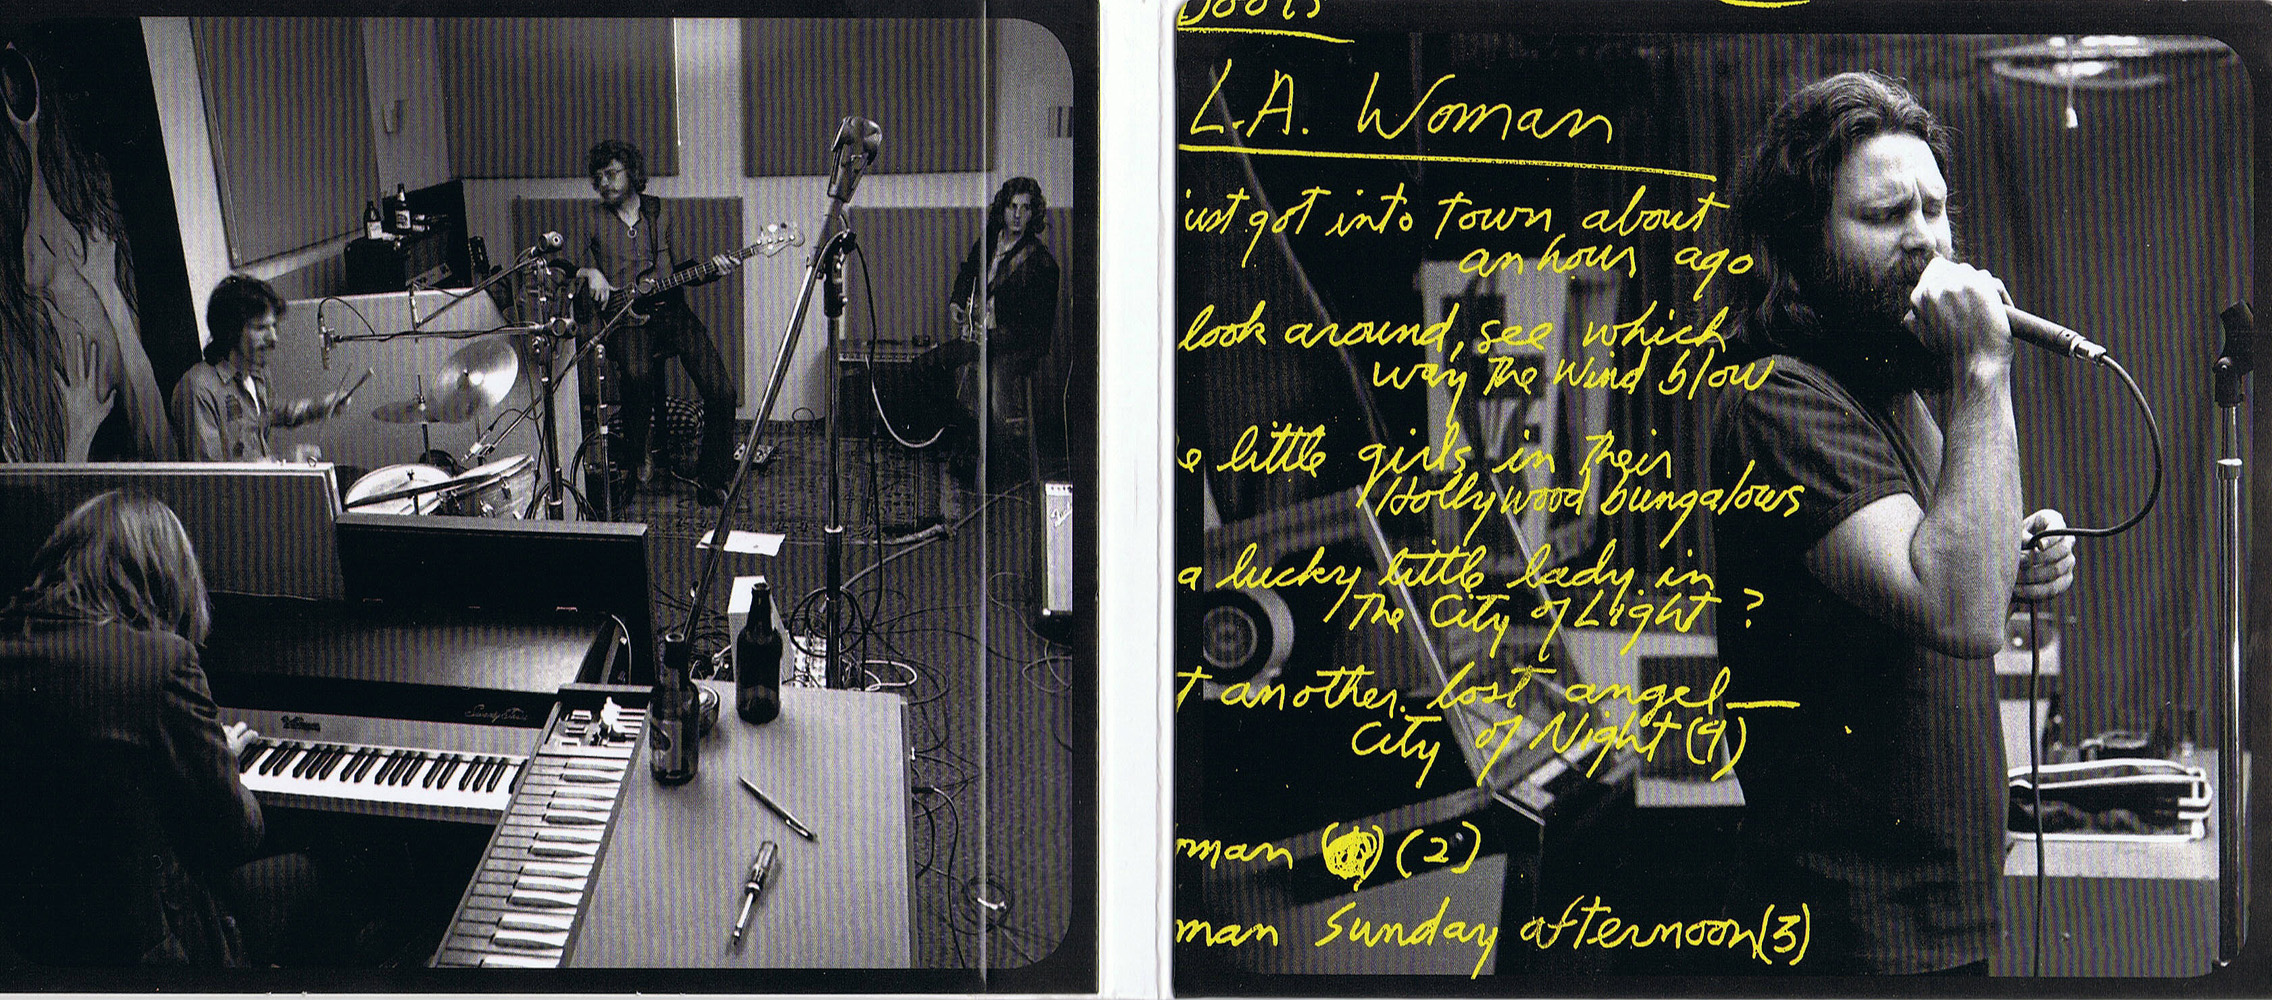 Doors
L.A. Woman
ust got into town about
an hour ago
look around, see which
way the wind blow
e little girls in their
Hollywood bungalows
a lucky little lady in
The City of Light ?
t another lost angel —
City of Night (4)
man (2)
man Sunday afternoon (3)